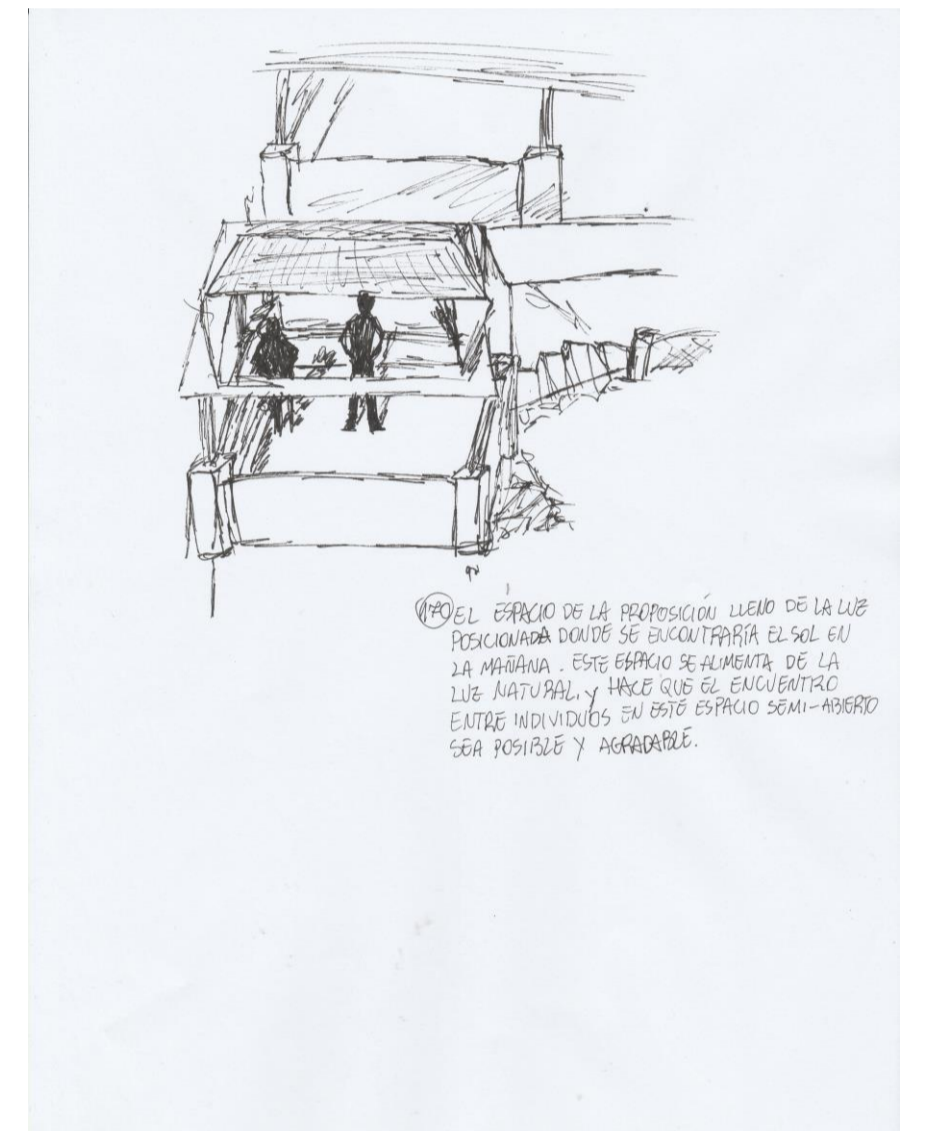 170 EL ESPACIO DE LA PROPOSICIÓN LLENO DE LA LUZ
POSICIONADA DONDE SE ENCONTRARÍA EL SOL EN
LA MAÑANA. ESTE ESPACIO SE ALIMENTA DE LA
LUZ NATURAL, Y HACE QUE EL ENCUENTRO
ENTRE INDIVIDUOS EN ESTE ESPACIO SEMI-ABIERTO
SEA POSIBLE Y AGRADABLE.